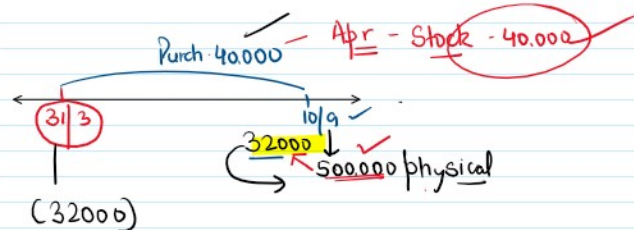 Purch. 40,000 - Apr - Stock - 40,000
31/3
10/9
32000
500,000 physical
(32000)